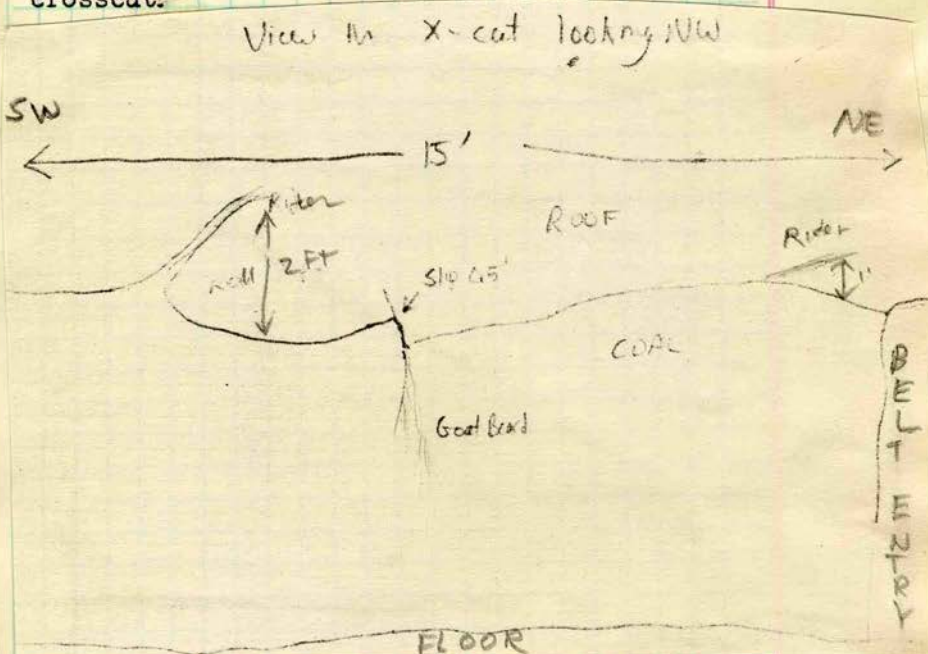 crosscut.
View in X-cut looking NW
SW
NE
15'
Rider
ROOF
Rider
Roll
2 Ft
Slip
1'
COAL
Goat Beard
BELT ENTRY
FLOOR